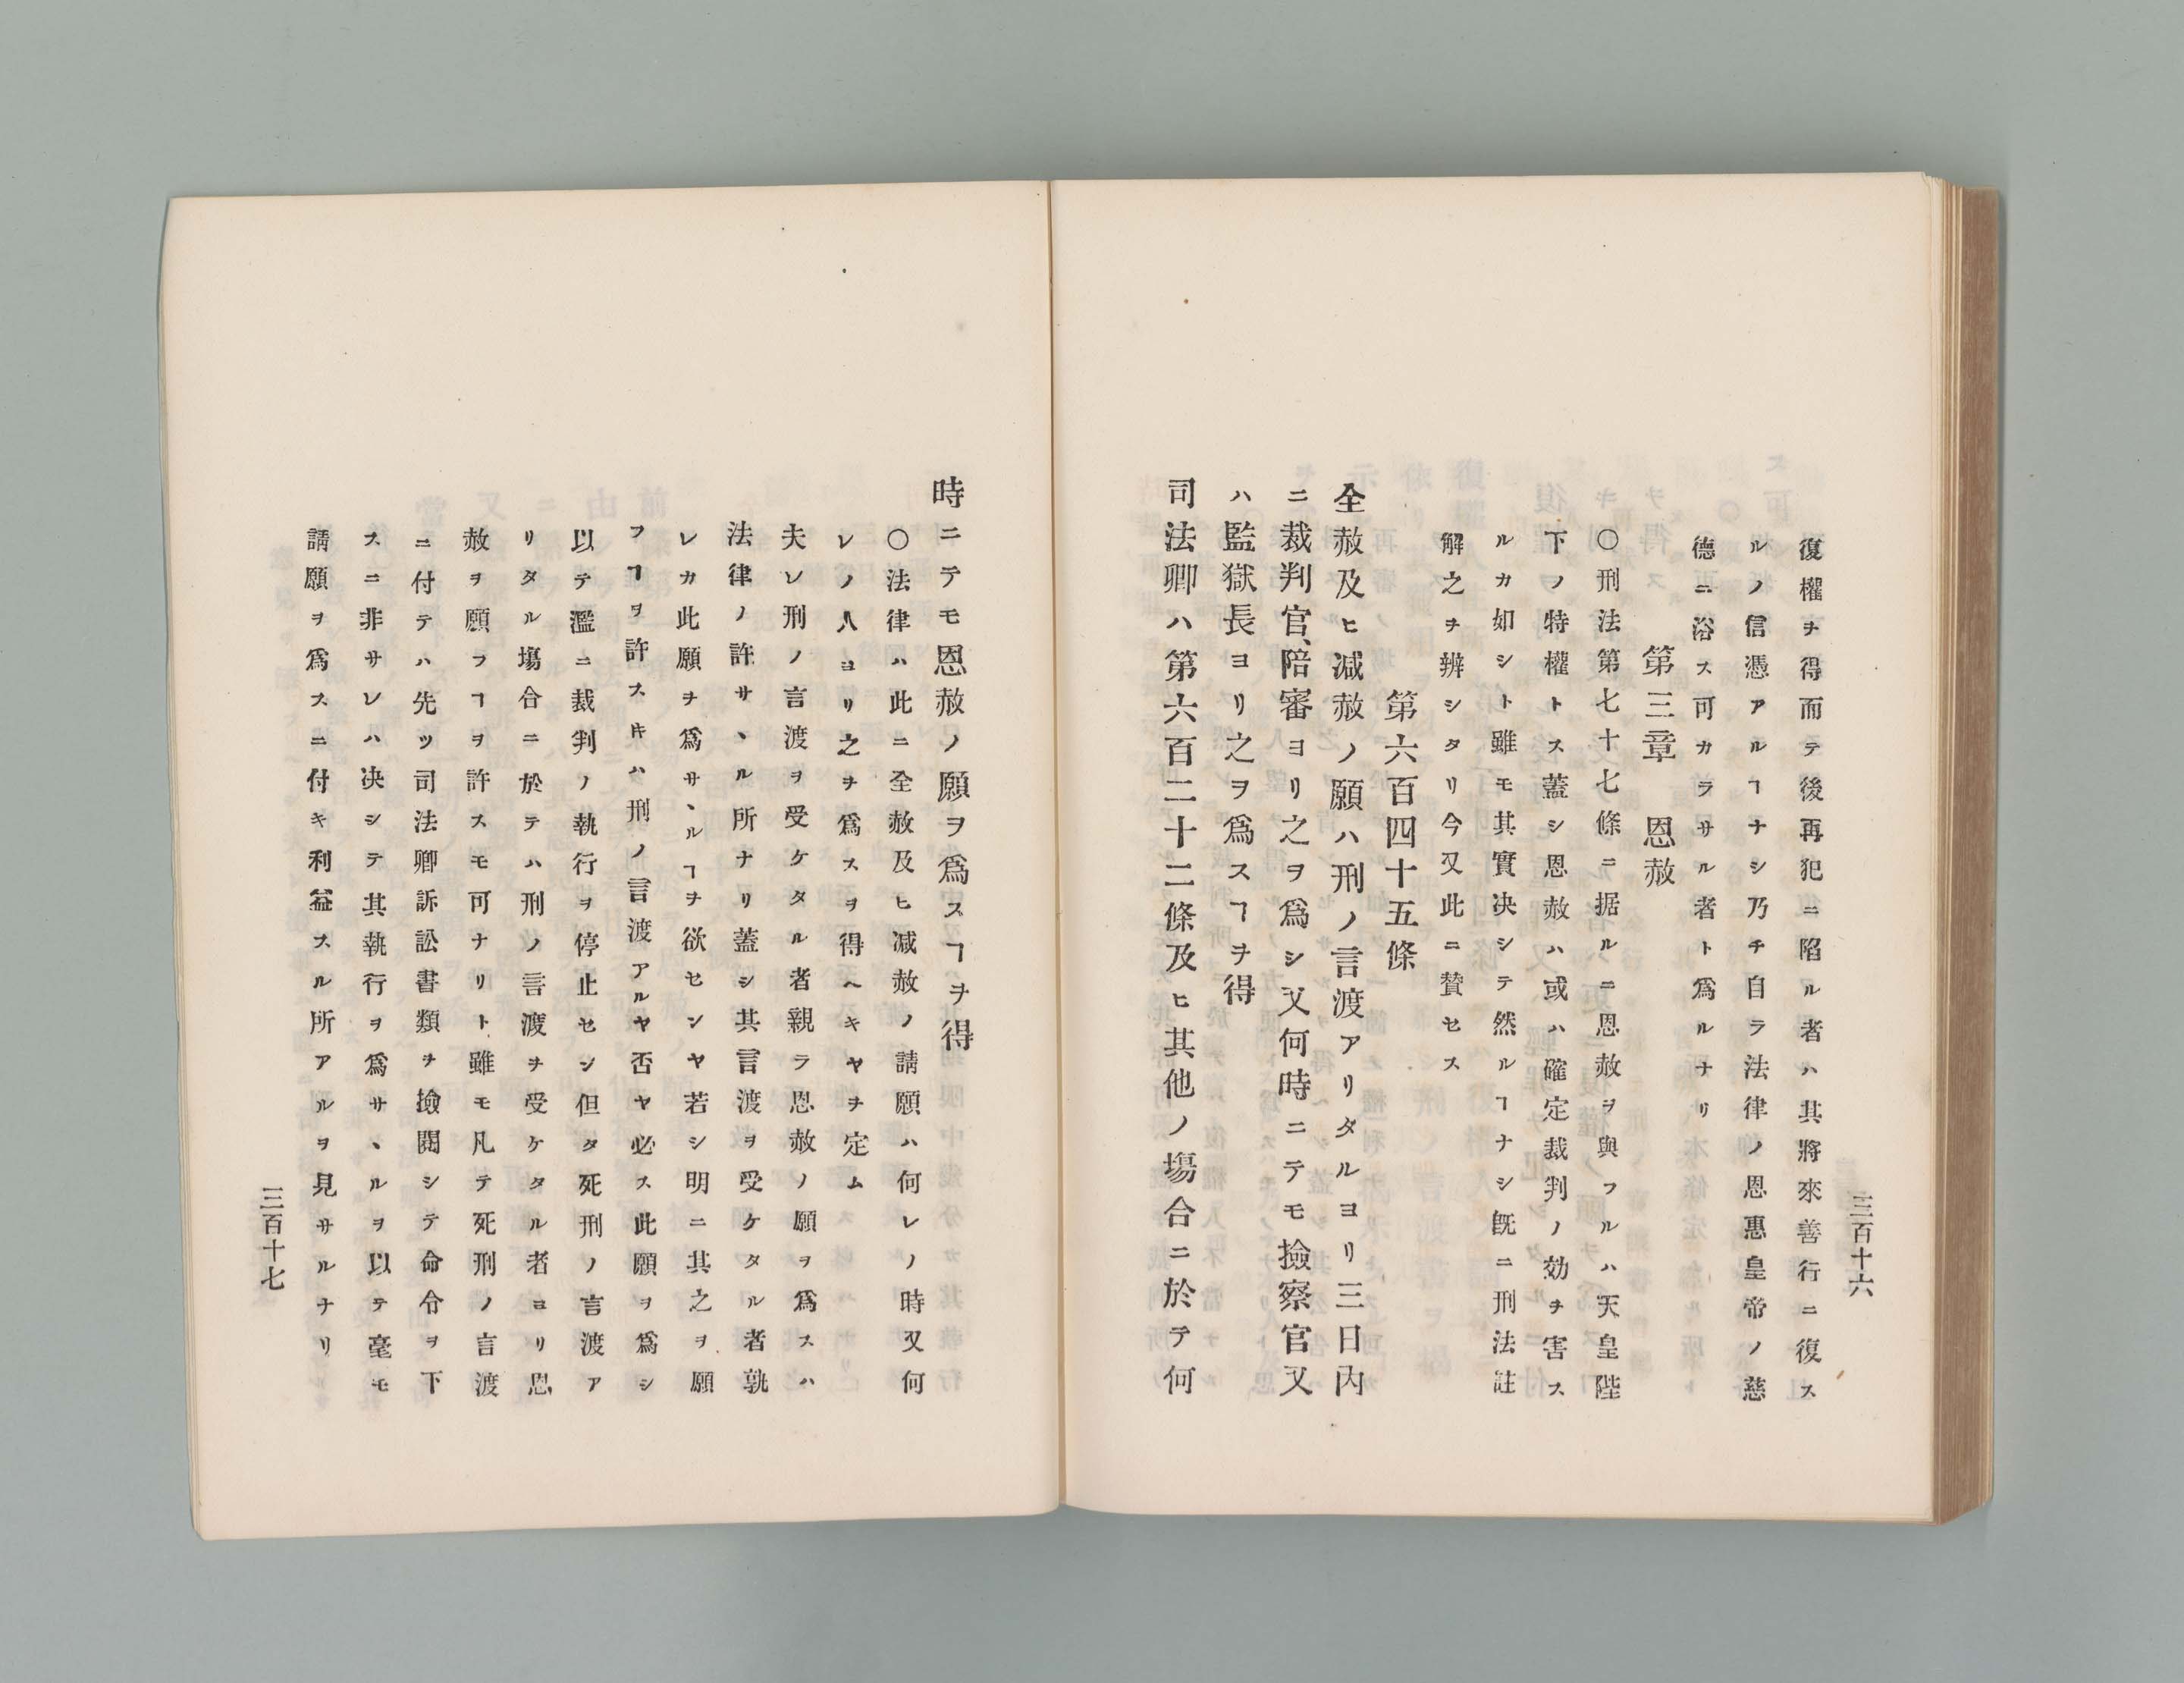 三百十六
復權ヲ得而テ後再犯ニ陷ル者ハ其將來善行ニ復ス
ルノ信憑アルヿナシ乃チ自ラ法律ノ恩惠皇帝ノ慈
德ニ浴ス可カラサル者ト爲ルナリ
第三章 恩赦
〇刑法第七十七條ニ据ルニ恩赦ヲ與フルハ天皇陛
下ノ特權トス蓋シ恩赦ハ或ハ確定裁判ノ効ヲ害ス
ルカ如シト雖モ其實決シテ然ルヿナシ旣ニ刑法註
解之ヲ辨シタリ今又此ニ贅セス
第六百四十五條
全赦及ヒ減赦ノ願ハ刑ノ言渡アリタルヨリ三日內
ニ裁判官、陪審ヨリ之ヲ爲シ又何時ニテモ撿察官又
ハ監獄長ヨリ之ヲ爲スヿヲ得
司法卿ハ第六百二十二條及ヒ其他ノ塲合ニ於テ何
時ニテモ恩赦ノ願ヲ爲スヿヲ得
〇法律ハ此ニ全赦及ヒ減赦ノ請願ハ何レノ時又何
レノ人ヨリ之ヲ爲スヲ得ヘキヤヲ定ム
夫レ刑ノ言渡ヲ受ケタル者親ラ恩赦ノ願ヲ爲スハ
法律ノ許サヽル所ナリ蓋シ其言渡ヲ受ケタル者孰
レカ此願ヲ爲サヽルヿヲ欲センヤ若シ明ニ其之ヲ願
フヿヲ許スキハ刑ノ言渡アルヤ否ヤ必ス此願ヲ爲シ
以テ濫ニ裁判ノ執行ヲ停止セン但タ死刑ノ言渡ア
リタル塲合ニ於テハ刑ノ言渡ヲ受ケタル者ヨリ恩
赦ヲ願フヿヲ許スモ可ナリト雖モ凡テ死刑ノ言渡
ニ付テハ先ツ司法卿訴訟書類ヲ撿閱シテ命令ヲ下
スニ非サレハ決シテ其執行ヲ爲サヽルヲ以テ毫モ
請願ヲ爲スニ付キ利益スル所アルヲ見サルナリ
三百十七